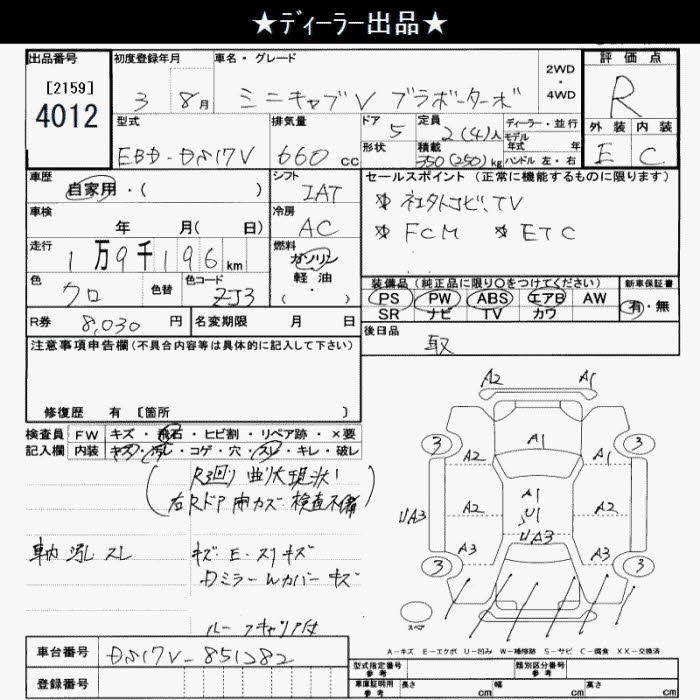 ★ディーラー出品★
出品番号
[2159]
4012
初度登録年月
3 8月
車名・グレード
ミニキャブV ブラボーターボ
2WD
・
4WD
評価点
R
型式
EBD-DS17V
排気量
660 cc
ドア
5
形状
定員
2(4)人
積載
350(250)kg
ディーラー・並行
モデル
年式 年
ハンドル 左・右
外装 内装
E C
車歴
自家用・( )
シフト
IAT
車検
年 月( 日)
冷房
AC
走行
1万9千196km
燃料
ガソリン
軽油
・( )
色
クロ
色替
色コード
ZJ3
R券
8,030 円
名変期限 月 日
セールスポイント(正常に機能するものに限ります)
TV
FCM ETC
装備品(純正品に限り○をつけてください)
PS PW ABS エアB AW
SR ナビ TV カワ
新車保証書
有・無
後日品
取
注意事項申告欄(不具合内容等は具体的に記入して下さい)
修復歴 有 [箇所 ]
検査員
記入欄
FW キズ・飛石・ヒビ割・リペア跡・×要
内装 キズ・汚レ・コゲ・穴・スレ・キレ・破レ
検査不備)
車内 汚レ スレ
キズ E・スリキズ
ルーフキャリア付
A2 A1
3 A1 3
A2 A1 A2
UA3 U1
UA3
A3 A3
3 3
スペア
A-キズ E-エクボ U-凹み W-補修跡 S-サビ C-腐食 XX-交換済
車台番号
DS17V-851282
登録番号
型式指定番号
参考
類別区分番号
参考
車庫証明用
参考
長さ cm 幅 cm 高さ cm